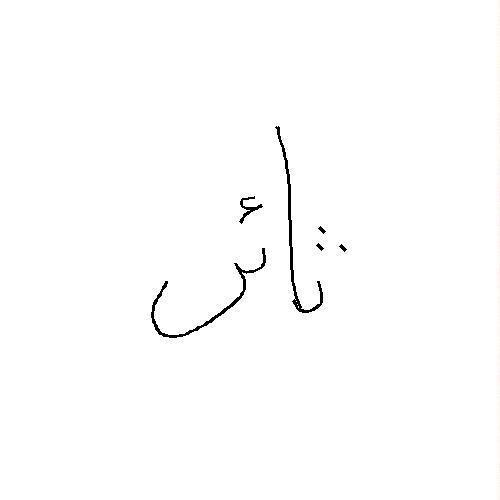 ثائر